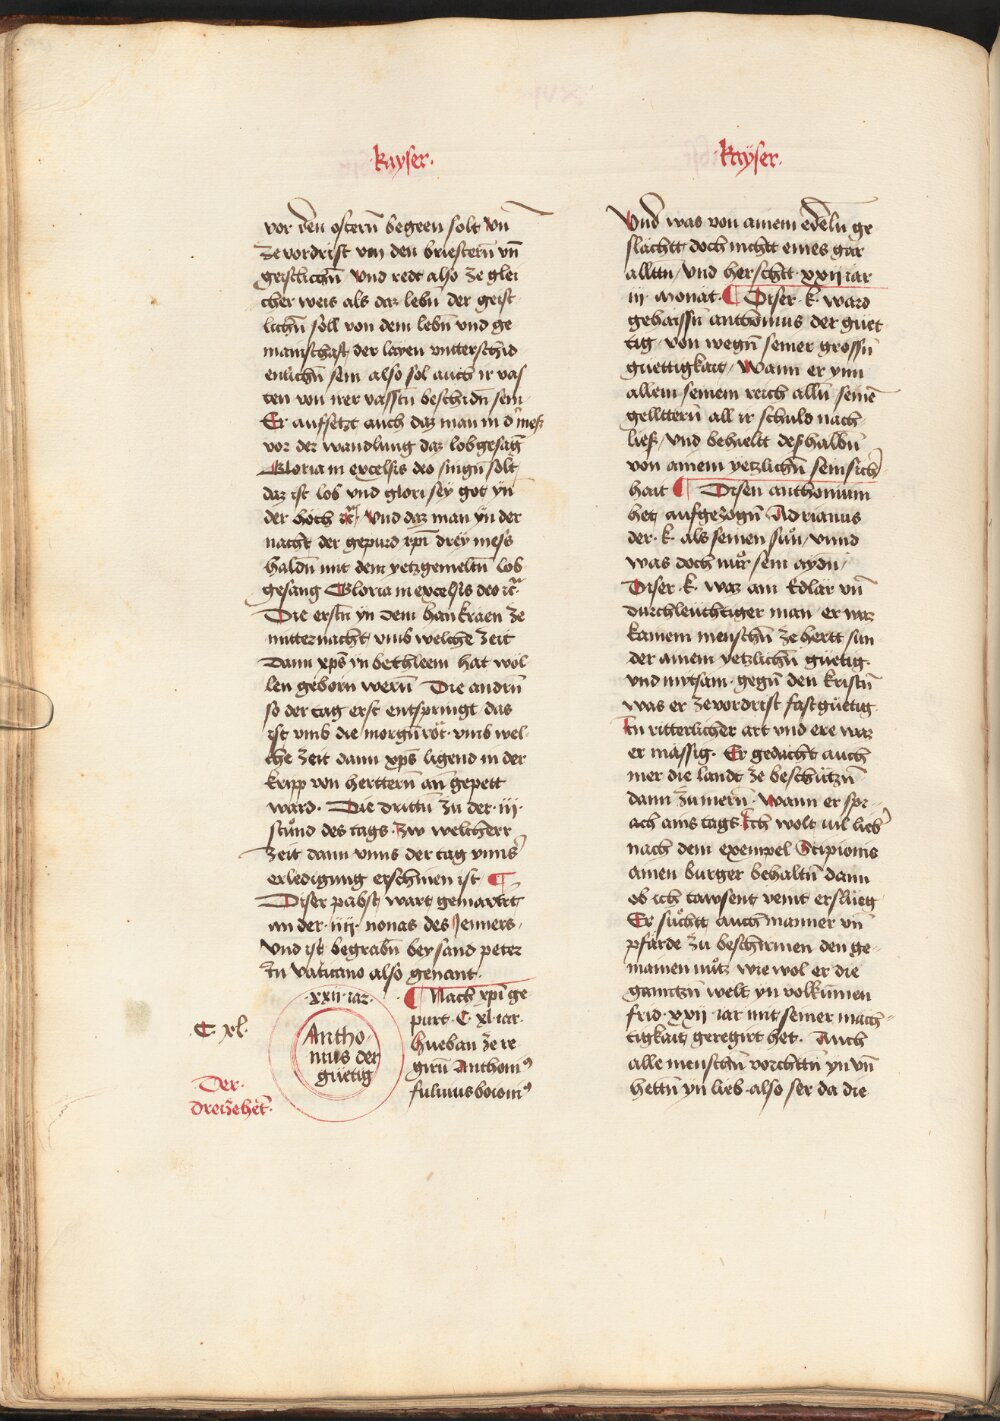 kayser.
vor den osterñ begeen solt Vñ
zevordrist von den briesterñ vñ
geistlichñ Vnd redt also ze glei
cher weis als daz lebñ der geist
lichñ soll von dem lebñ vnd ge
mainschaft der layen vntterschid
enlichñ sein also sol auch ir vas
ten von irer vasstñ beschidñ sein
Er auffsetzt auch daz man in d' mesz
vor der wandlung daz lobgesãg
Gloria in excelsis deo singñ solt
daz ist lob vnd glori sey got yn
der höch ꝛc Vnd daz man yn der
nacht der gepurd xp̃i drey mess
haldñ mit dem yetzgemeltñ lob
gesang Gloria in excelsis deo ꝛc
Die erstñ yn dem hankraen ze
mitternacht vmb welche zeit
Dann xps̃ yn bethleem hat wol
len geborn werñ Die andrñ
so der tag erst entspringt das
ist vmb die morgñröt vmb wel
che zeit dann xps̃ ligend in der
kripp von herttern an gepett
ward. Die drittñ zu der .iij.
stund des tags zw welcherr
zeit dann vnns der tag vnns'
erledigung erschinen ist ¶
Diser pabst wart gemartrt
an der .iiij. nonas des Jenners.
Vnd ist begrabñ bey sand peter
In Vaticano also genant.
.xxij. iar.
Antho
nius der
güetig
C. xl.
Der.
dreizehet.
¶ Nach xp̃i ge
purt .C. xl. iar.
hueban ze re
girñ Anthoni9
fuluius boioni9
kayser.
Vnd was von ainem edelñ ge
slächtt doch nichtt eines gar
alltñ / Vnd herschtt .xxij. iar
iij. monat. ¶ Diser .k. ward
gehaissñ anthonius der güet
tig. von wegñ seiner grossñ
güettigkait / Wann er ynn
allem seinem reich allñ seinẽ
gellttern all ir schuld nach
liesz / Vnd behieltt deszhalbñ
von ainem yetzlichñ sein sich'
hait ¶ Disen anthonium
het aufgezogñ Adrianus
der .k. als seinen sun / vnnd
was doch nur sein aydn /
Diser .k. waz ain Edlär vñ
durchleuchtiger man er waz
kainem menschñ ze hertt sun
der ainem yetzlichñ güetig.
vnd mytsam. gegñ den kristñ
was er zevordrist fast güetig.
In ritterlicher art vnd ere waz
er massig. Er gedacht auch
mer die landt ze beschützñ
dann zu mern. Wann er spr
ach ains tags Ich wolt vil lieb'
nach dem exempel Scipionis
ainen burger behaltñ dann
ob ich tawsent veint erslüeg
Er suchtt auch manner vñ
pfärde zu beschirmen den ge
mainen nutz wie wol er die
ganntzñ welt yn volkumen
frid .xxij. iar mit seiner mäch
tigkait geregirt het. Auch
alle menschñ vorchttñ yn vñ
hettñ yn lieb also ser da die